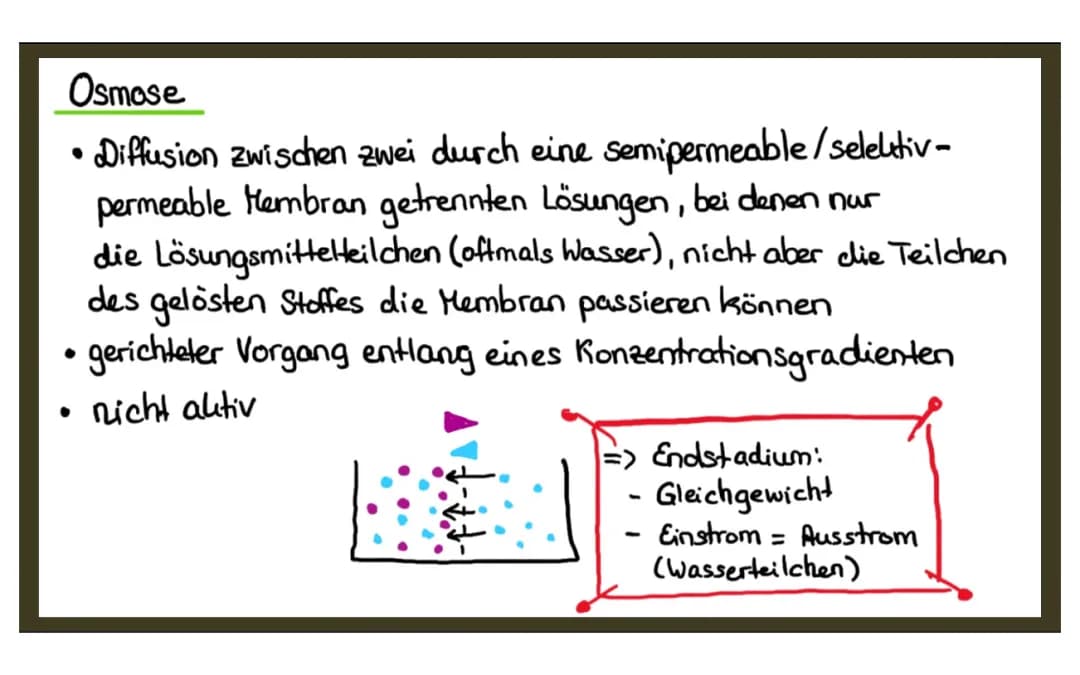 Osmose
• Diffusion zwischen zwei durch eine semipermeable/selektiv-
permeable Membran getrennten Lösungen, bei denen nur
die Lösungsmittelteilchen (oftmals Wasser), nicht aber die Teilchen
des gelösten Stoffes die Membran passieren können
• gerichteter Vorgang entlang eines Konzentrationsgradienten
• nicht aktiv
=> Endstadium:
- Gleichgewicht
- Einstrom = Ausstrom
(Wasserteilchen)